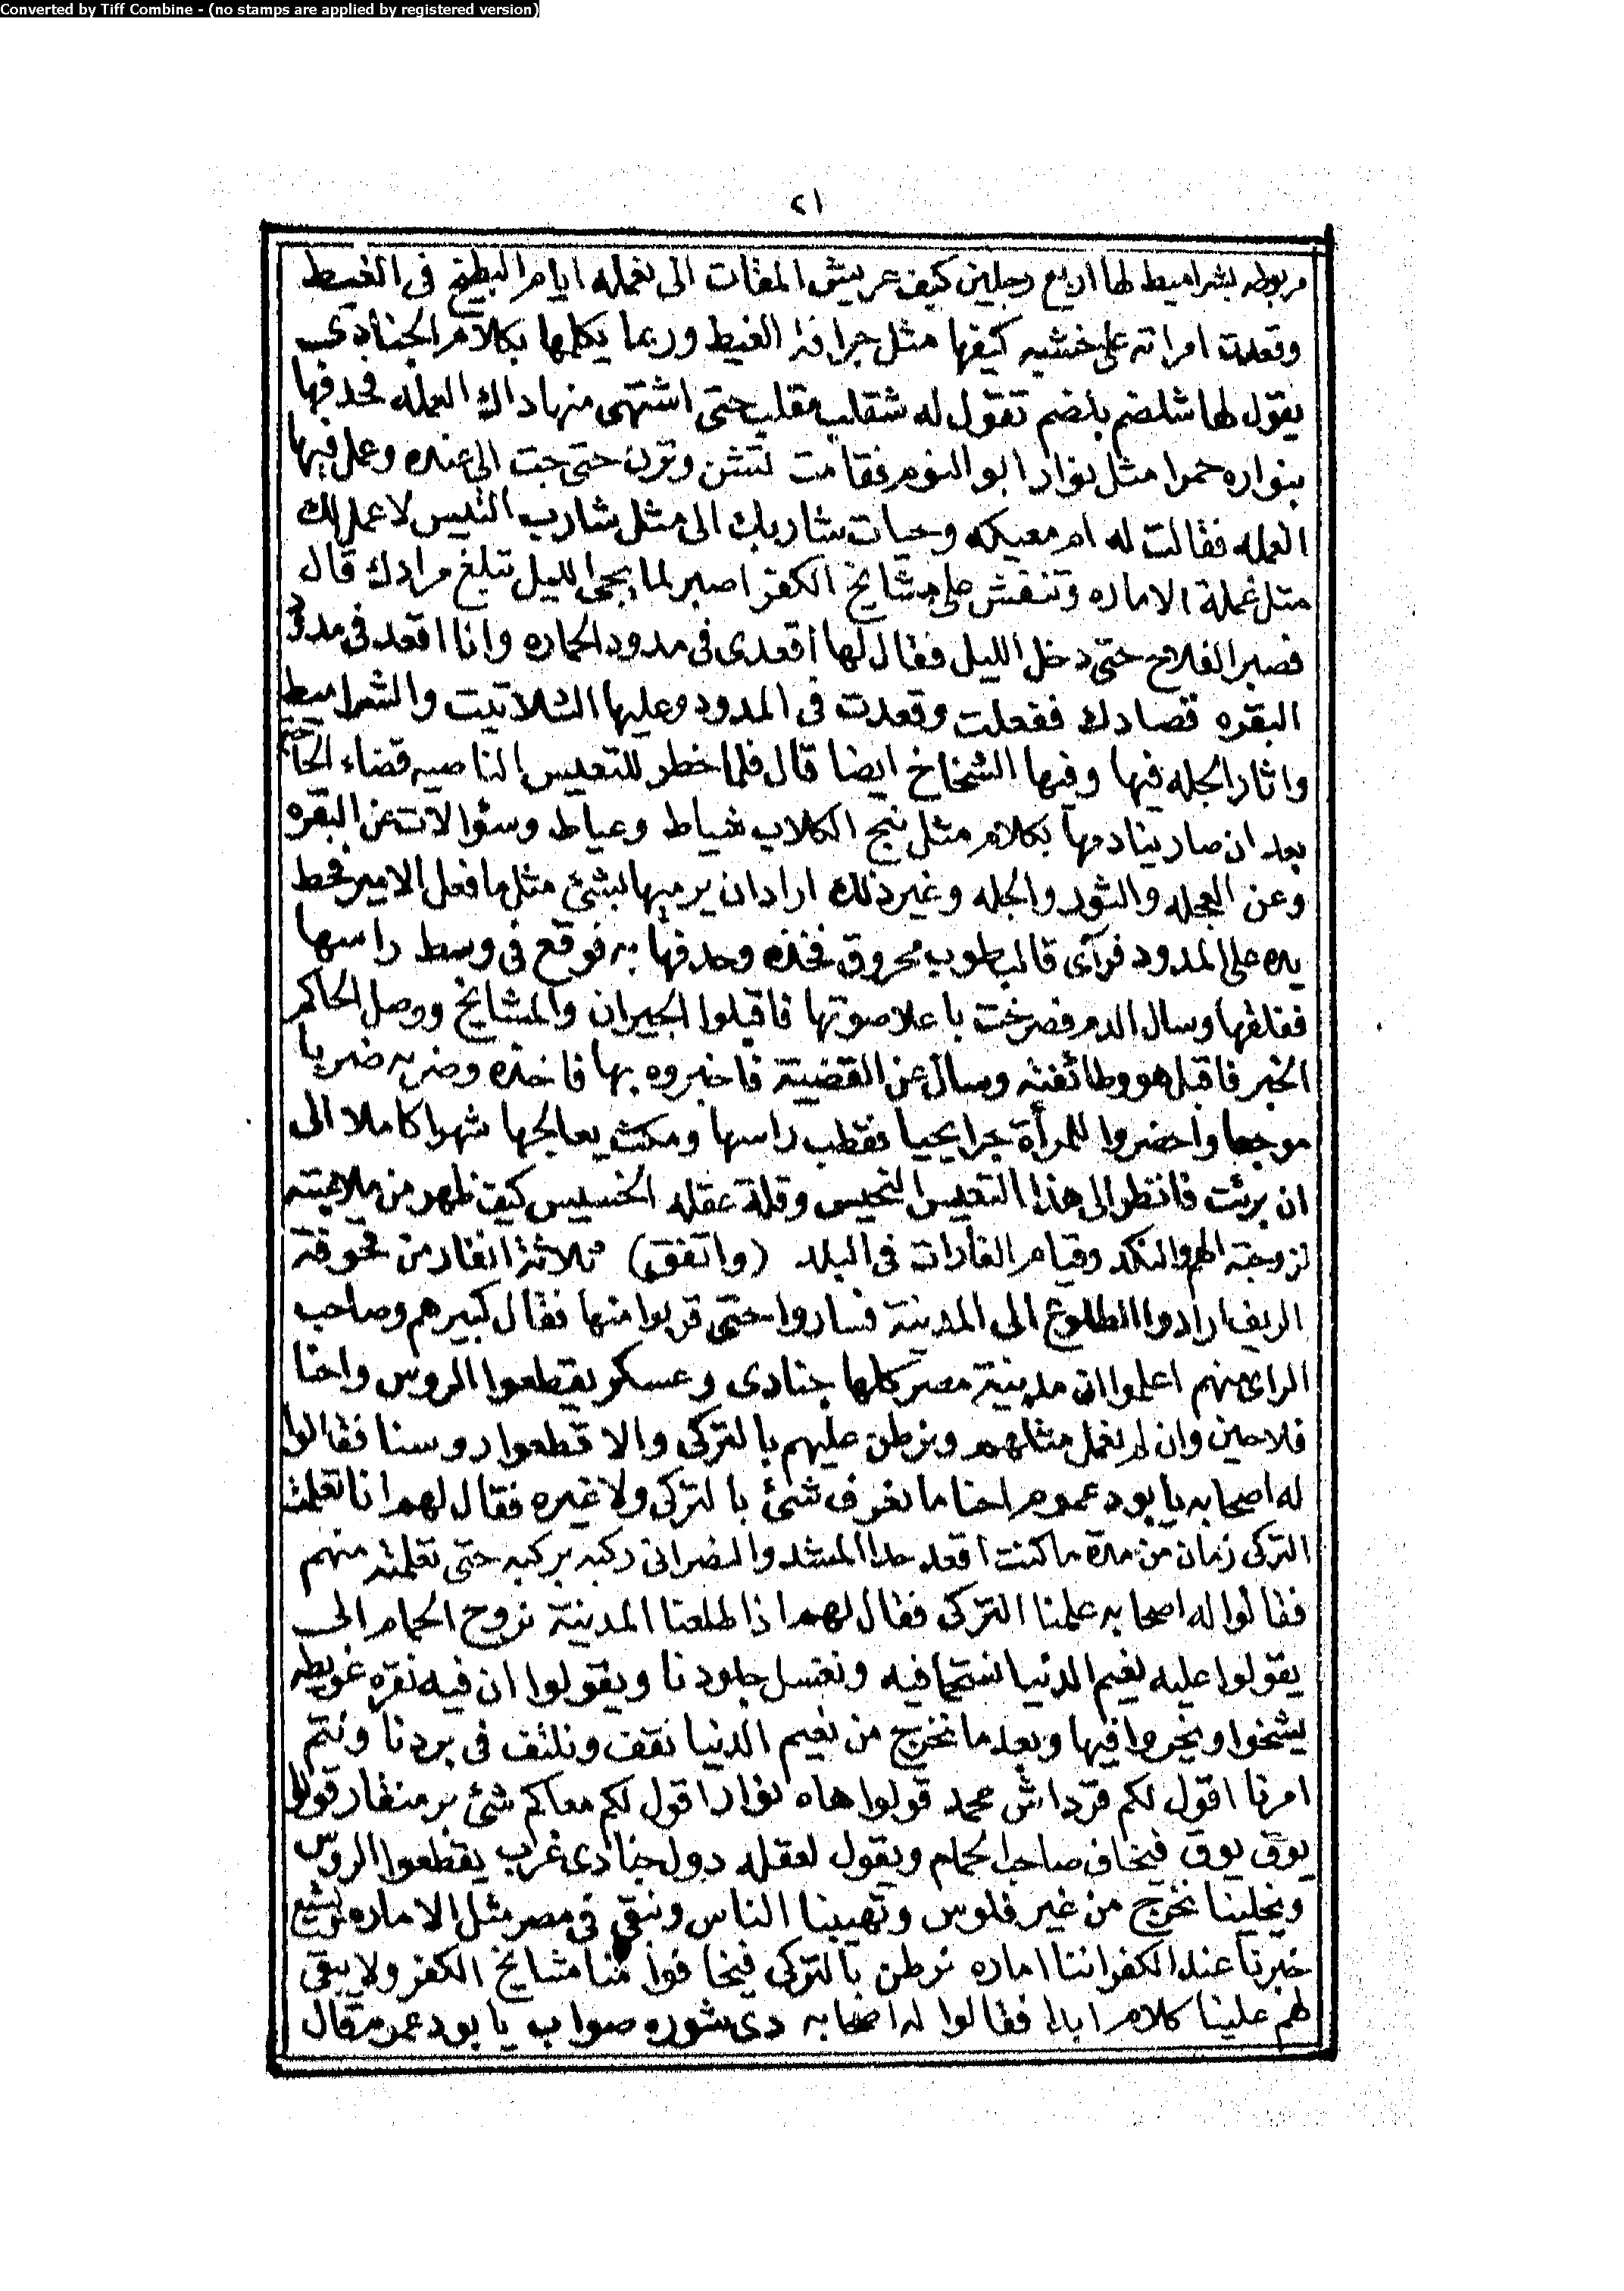 Converted by Tiff Combine - (no stamps are applied by registered version)
٢١
مربوطه بشراميط لها اربع رجلين كيف عريش المقات الى نعمله ايام البطيخ فى الغيط
وقعدت امراته على خشبه كيفها مثل جرافة الغيط وربما يكلمها بكلام الجنادى
يقول لها شلضم بلضم تقول له شقلب مقلب حتى اشتهى منها داك العمله فحدفها
بنواره حمرا مثل نوار ابو النوم فقامت تتشن وترن حتى جت الى عنده وعمل فيها
العمله فقالت له ام معيكه وحيات شاربك الى مثل شارب التيس لاعمل لك
متل عملة الاماره وتنفش على مشايخ الكفر اصبر لما يجى الليل تبلغ مرادك قال
فصبر الفلاح حتى دخل الليل فقال لها اقعدى فى مدود الحماره وانا اقعد فى مدود
البقره قصادك ففعلت وقعدت فى المدود وعليها الشلاتيت والشراميط
واثار الجله فيها وفيها الشخاخ ايضا قال فلما خطر للتعيس الناصيه قضاء الحاجه
بعد ان صار ينادمها بكلام مثل نبح الكلاب شياط وعياط وسؤالات عن البقره
وعن العجله والثور والجله وغير ذلك اراد ان يرميها بشئ مثل ما فعل الامير فحط
يده على المدود فرآى قالب طوب محروق فخذه وحدفها به فوقع فى وسط راسها
ففلقها وسال الدم فصرخت باعلا صوتها فاقبلوا الجيران والمشايخ ووصل الحاكم
الخبر فاقبل هو وطائفته وسال عن القضية فاخبروه بها فاخذه وضربه ضربا
موجعا واحضروا للمرأة جرايحيا فقطب راسها ومكث يعالجها شهرا كاملا الى
ان برئت فانظر الى هذا التعيس النحيس وقلة عقله الخسيس كيف ظهر من ملاعبته
لزوجته الهم والنكد وقيام الغارات فى البلد (واتفق) ثلاثة انفار من قحوفة
الريف ارادوا الطلوع الى المدينة فساروا حتى قربوا منها فقال كبيرهم وصاحب
الراى منهم اعلموا ان مدينة مصر كلها جنادى وعسكر يقطعوا الروس واحنا
فلاحين وان لم نعمل مثلهم ونرطن عليهم بالتركى والا قطعوا روسنا فقالوا
له اصحابه يا بو دعموم احنا ما نعرف شئ بالتركى ولا غيره فقال لهم انا تعلمت
التركى زمان من مدة ما كنت اقعد حدا المشد والنصرانى ركبه بركبه حتى تعلمته منهم
فقالوا له اصحابه علمنا التركى فقال لهم اذا طلعنا المدينة نروح الحمام الى
يقولوا عليه نعيم الدنيا نستحما فيه ونغسل جلودنا ويقولوا ان فيه نقره غويطه
يشخوا ويخروا فيها وبعد ما نخرج من نعيم الدنيا نقف ونلتف فى بردنا ونتم
امرنا اقول لكم قرداش محمد قولوا هاه نوار اقول لكم معاكم شئ بر منقار قولوا
يوق يوق فيخاف صاحب الحمام ويقول لعقله دول جنادى غرب يقطعوا الروس
ويخلينا نخرج من غير فلوس وتهيبنا الناس ونبقى فى مصر مثل الاماره يشيع
خبرنا عند الكفر اننا اماره نرطن بالتركى فيخافوا منا مشايخ الكفر ولا يبقى
لهم علينا كلام ابدا فقالوا له اصحابه دى شوره صواب يا بو دعموم قال